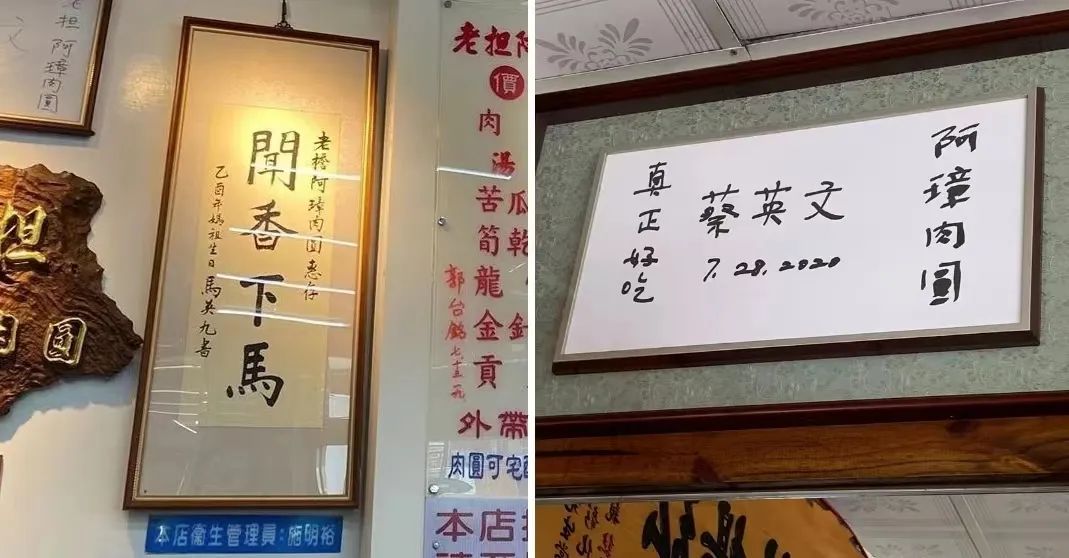 老担阿璋肉圓
文
担
肉圓
老檐阿璋肉圓惠存
聞香下馬
乙酉年媽祖生日馬英九書
本店衛生管理員:施明裕
老担阿
價
肉
湯
苦瓜
筍乾
龍
金針
貢
郭台銘
外帶
肉圓可宅
本店
阿璋肉圓
蔡英文
7.28.2020
真正好吃